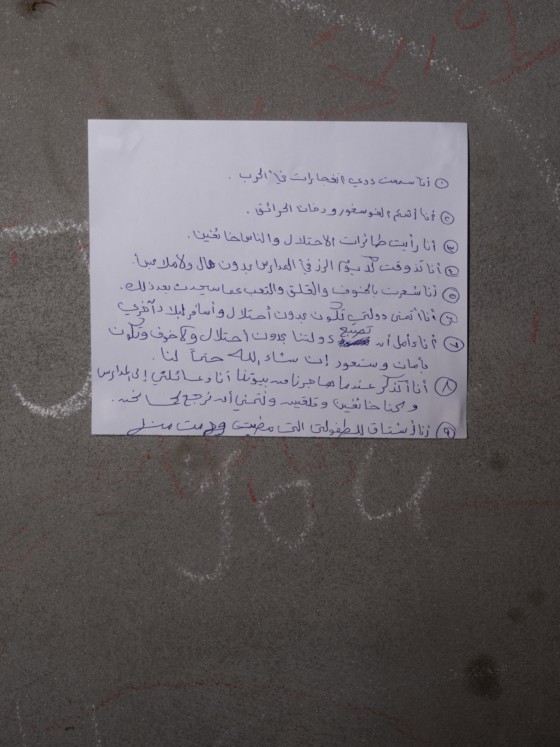 ① أنا سمعت دوي انفجارات في الحرب .
② أنا أشم الفوسفور ودخان الحرائق .
③ أنا رأيت طائرات الاحتلال والناس خائفين .
④ أنا تذوقت كل يوم الرز في المدارس بدون مال ولا ملابس .
⑤ أنا شعرت بالخوف والقلق والتعب عما سيحدث بعد ذلك .
⑥ أنا أتمنى دولتي تكون بدون أحتلال وأسافر لبلاد أخرى
⑦ أنا أمل أن تصبح دولتنا بدون إحتلال ولا خوف وتكون
بأمان وستعود إن شاء الله حتماً لنا .
⑧ أنا أتذكر عندما هاجرنا من بيوتنا أنا وعائلتي إلى المدارس
وكنا خائفين وقلقين ونتمنى أن نرجع
⑨ أنا أشتاق للطفولتي التي مضيت